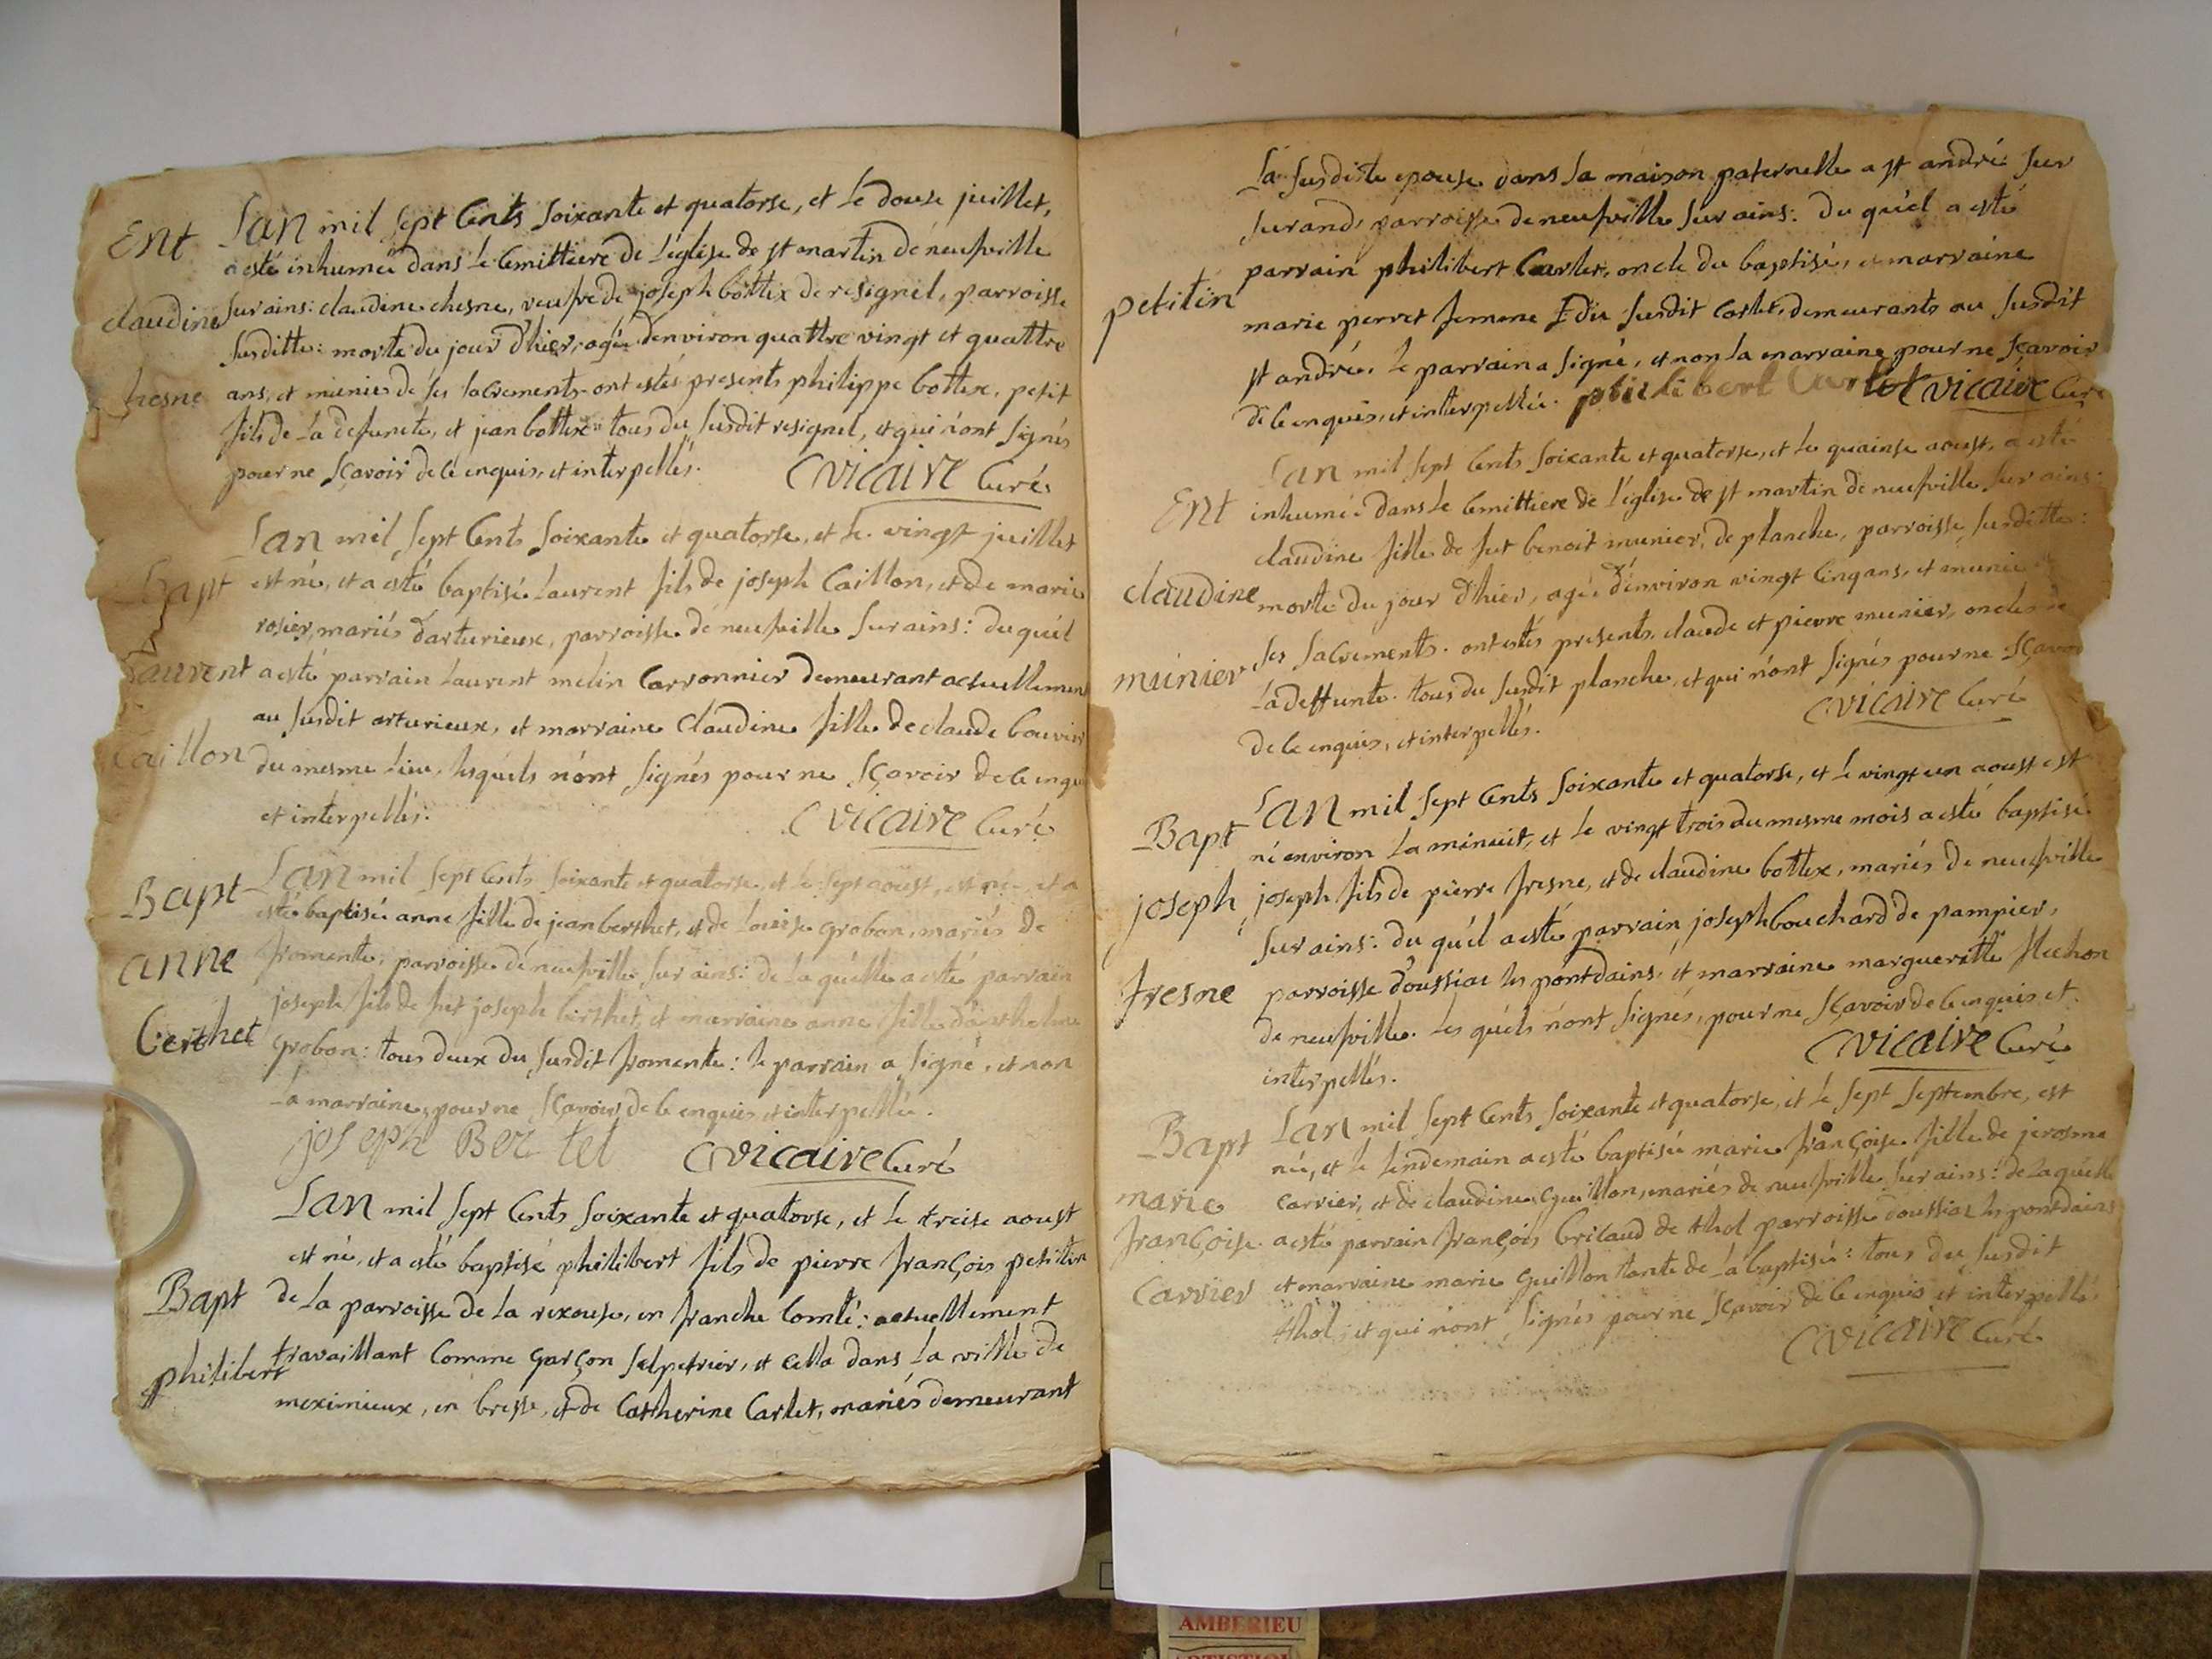 Ent
claudine
chesne
Lan mil sept Cents soixante et quatorse, et le douse juillet,
a esté inhumée dans le Cemittiere de L'eglise de st martin de neufville
sur ains: claudine chesne, veufve de joseph bottex de resignel, parroisse
susditte: morte du jour d'hier, agée d'environ quattre vingt et quattre
ans, et munie de ses sacrements. ont estés presents philippe bottex, petit
fils de La defuncte, et jean bottex tous du susdit resignel, et qui n'ont signés
pour ne sçavoir de ce enquis, et interpellés. CVICAIRE Curé
Bapt
Laurent
Caillon
Lan mil sept Cents soixante et quatorse, et le vingt juillet
est né, et a esté baptisé Laurent fils de joseph Caillon, et de marie
rosier, mariés d'arturieux, parroisse de neufville sur ains: du quel
a esté parrain Laurent melin Carronnier demeurant actuellement
au susdit arturieux, et marraine Claudine fille de claude bouvier
du mesme Lieu, lesquels n'ont signés pour ne sçavoir de ce enquis
et interpellés. CVICAIRE Curé
Bapt
anne
berthet
Lan mil sept Cents soixante et quatorse, et le sept aoust, est née, et a
esté baptisée anne fille de jean berthet, et de Louise grobon, mariés de
fromente, parroisse de neufville sur ains: de la quelle a esté parrain
joseph fils de feu joseph berthet, et marraine anne fille
grobon: tous deux du susdit fromente: le parrain a signé, et non
La marraine, pour ne sçavoir, de ce enquise et interpellée.
joseph Bertet CVICAIRE Curé
Bapt
philibert
Lan mil sept Cents soixante et quatorse, et le treise aoust
est né, et a esté baptisé philibert fils de pierre françois petitin
de La parroisse de La rixouse, en franche Comté: actuellement
travaillant Comme garçon salpetrier, et cella dans La ville de
meximieux, en bresse, et de Catherine Carlet, mariés demeurant
petitin
La susditte epouse dans La maison paternelle a st andré sur
surand parroisse de neufville sur ains: du quel a esté
parrain philibert Carlet, oncle du baptisé, et marraine
marie perret femme du susdit Carlet, demeurants au susdit
st andré. Le parrain a signé, et non la marraine pour ne sçavoir
de ce enquise, et interpellée. philibert Carlet CVICAIRE Curé
Ent
claudine
munier
Lan mil sept Cents soixante et quatorse, et le quainse aoust, a esté
inhumée dans le Cemittiere de l'eglise de st martin de neufville sur ains:
claudine fille de feu benoit munier, de planche, parroisse susditte:
morte du jour d'hier, agée d'environ vingt cinq ans, et munie de
ses sacrements. ont estés presents, claude et pierre munier, oncles de
La deffunte. tous du susdit planche, et qui n'ont signés pour ne sçavoir
de ce enquis, et interpellés. CVICAIRE Curé
Bapt
joseph
fresne
Lan mil sept Cents soixante et quatorse, et le vingt un aoust est
né environ La minuit, et le vingt trois du mesme mois a esté baptisé
joseph fils de pierre fresne, et de claudine bottex, mariés de neufville
sur ains: du quel a esté parrain joseph bouchard de pampier,
parroisse d'oussiat les pontdains, et marraine margueritte flechon
de neufville. Les quels n'ont signés, pour ne sçavoir de ce enquis, et
interpellés. CVICAIRE Curé
Bapt
marie
françoise
Carrier
Lan mil sept Cents soixante et quatorse, et le sept septembre, est
née, et le lendemain a esté baptisée marie françoise fille de jerosme
carrier, et de claudine guillon, mariés de neufville sur ains: de la quelle
a esté parrain françois brilaud de thol parroisse doussiat les pontdains
et marraine marie guillon tante de La baptisée: tous du susdit
thol, et qui n'ont signés pour ne sçavoir de ce enquis et interpellés
CVICAIRE Curé
AMBERIEU